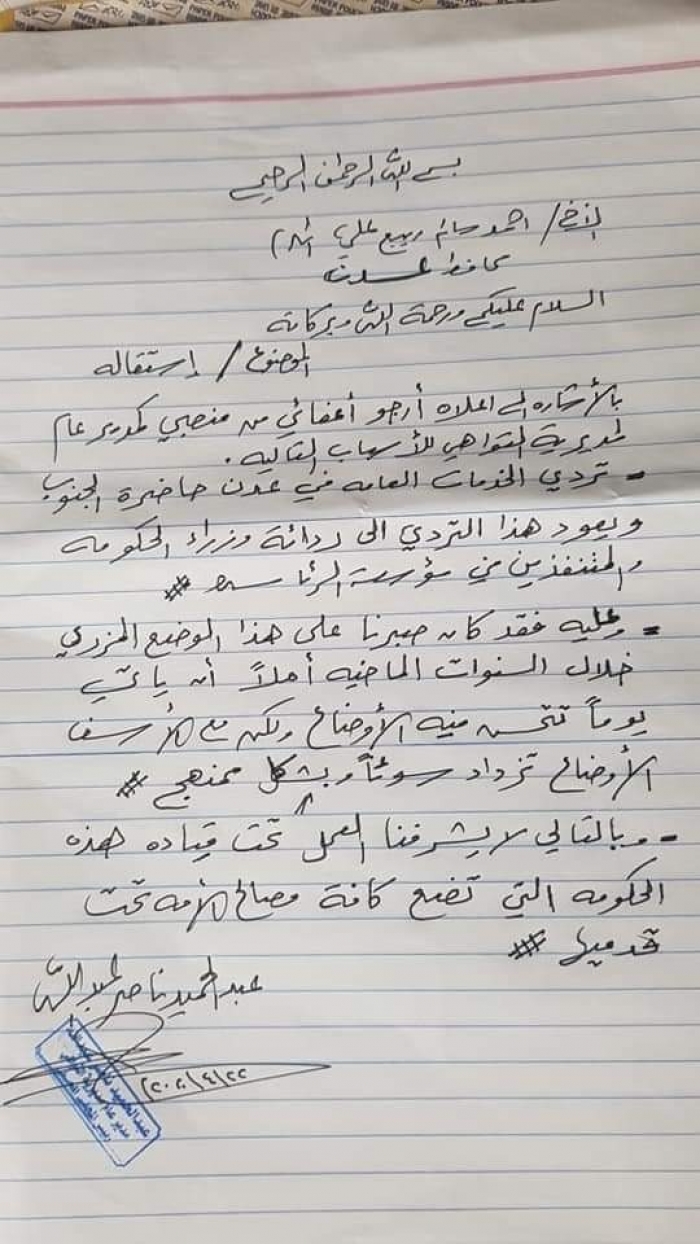 بسم الله الرحمن الرحيم
الأخ/ احمد سالم ربيع علي
محافظ عدن
السلام عليكم ورحمة الله وبركاته
الموضوع / إستقاله
بالأشاره الى اعلاه أرجو أعفائي من منصبي كمدير عام
لمديرية التواهي للأسباب التاليه .
- تردي الخدمات العامه في عدن حاضرة الجنوب
ويعود هذا التردي الى ردائة وزراء الحكومه
والمتنفذين في مؤسسة الرئاسه #
- وعليه فقد كان صبرنا على هذا الوضع المزري
خلال السنوات الماضيه أملاً أن يأتي
يوماً تتحسن فيه الأوضاع ولكن مع الأسف
الأوضاع تزداد سوئاً وبشكل ممنهج #
- وبالتالي لا يشرفنا العمل تحت قياده هذه
الحكومه التي تضع كافة مصالح الأمه تحت
قدميها #
عبدالحميد ناصر